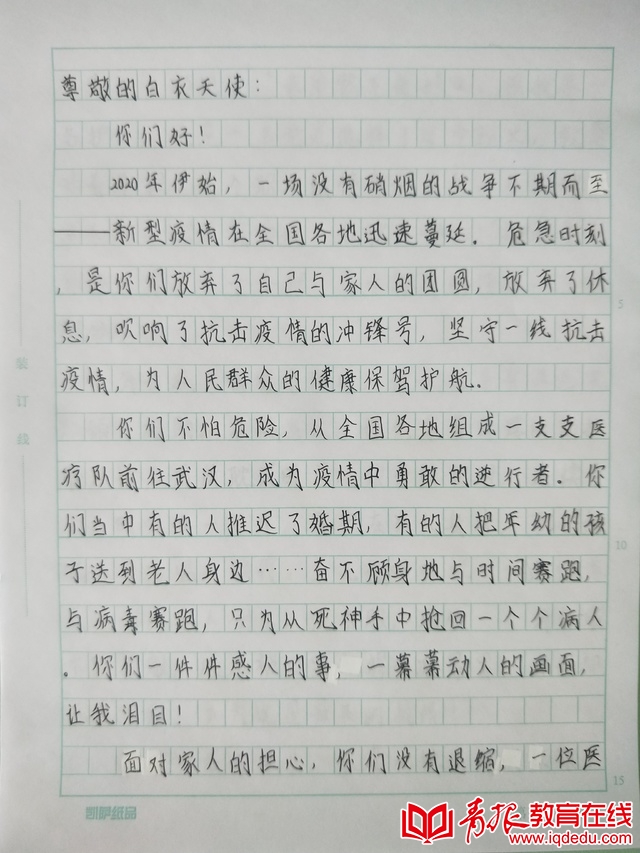 尊敬的白衣天使:
你们好!
2020年伊始,一场没有硝烟的战争不期而至
——新型疫情在全国各地迅速蔓延.危急时刻
,是你们放弃了自己与家人的团圆,放弃了休
息,吹响了抗击疫情的冲锋号,坚守一线抗击
疫情,为人民群众的健康保驾护航.
你们不怕危险,从全国各地组成一支支医
疗队前往武汉,成为疫情中勇敢的逆行者.你
们当中有的人推迟了婚期,有的人把年幼的孩
子送到老人身边……奋不顾身地与时间赛跑,
与病毒赛跑,只为从死神手中抢回一个个病人
.你们一件件感人的事,一幕幕动人的画面,
让我泪目!
面对家人的担心,你们没有退缩,一位医
装订线
5
10
15
凯萨纸品
青报教育在线
www.iqdedu.com